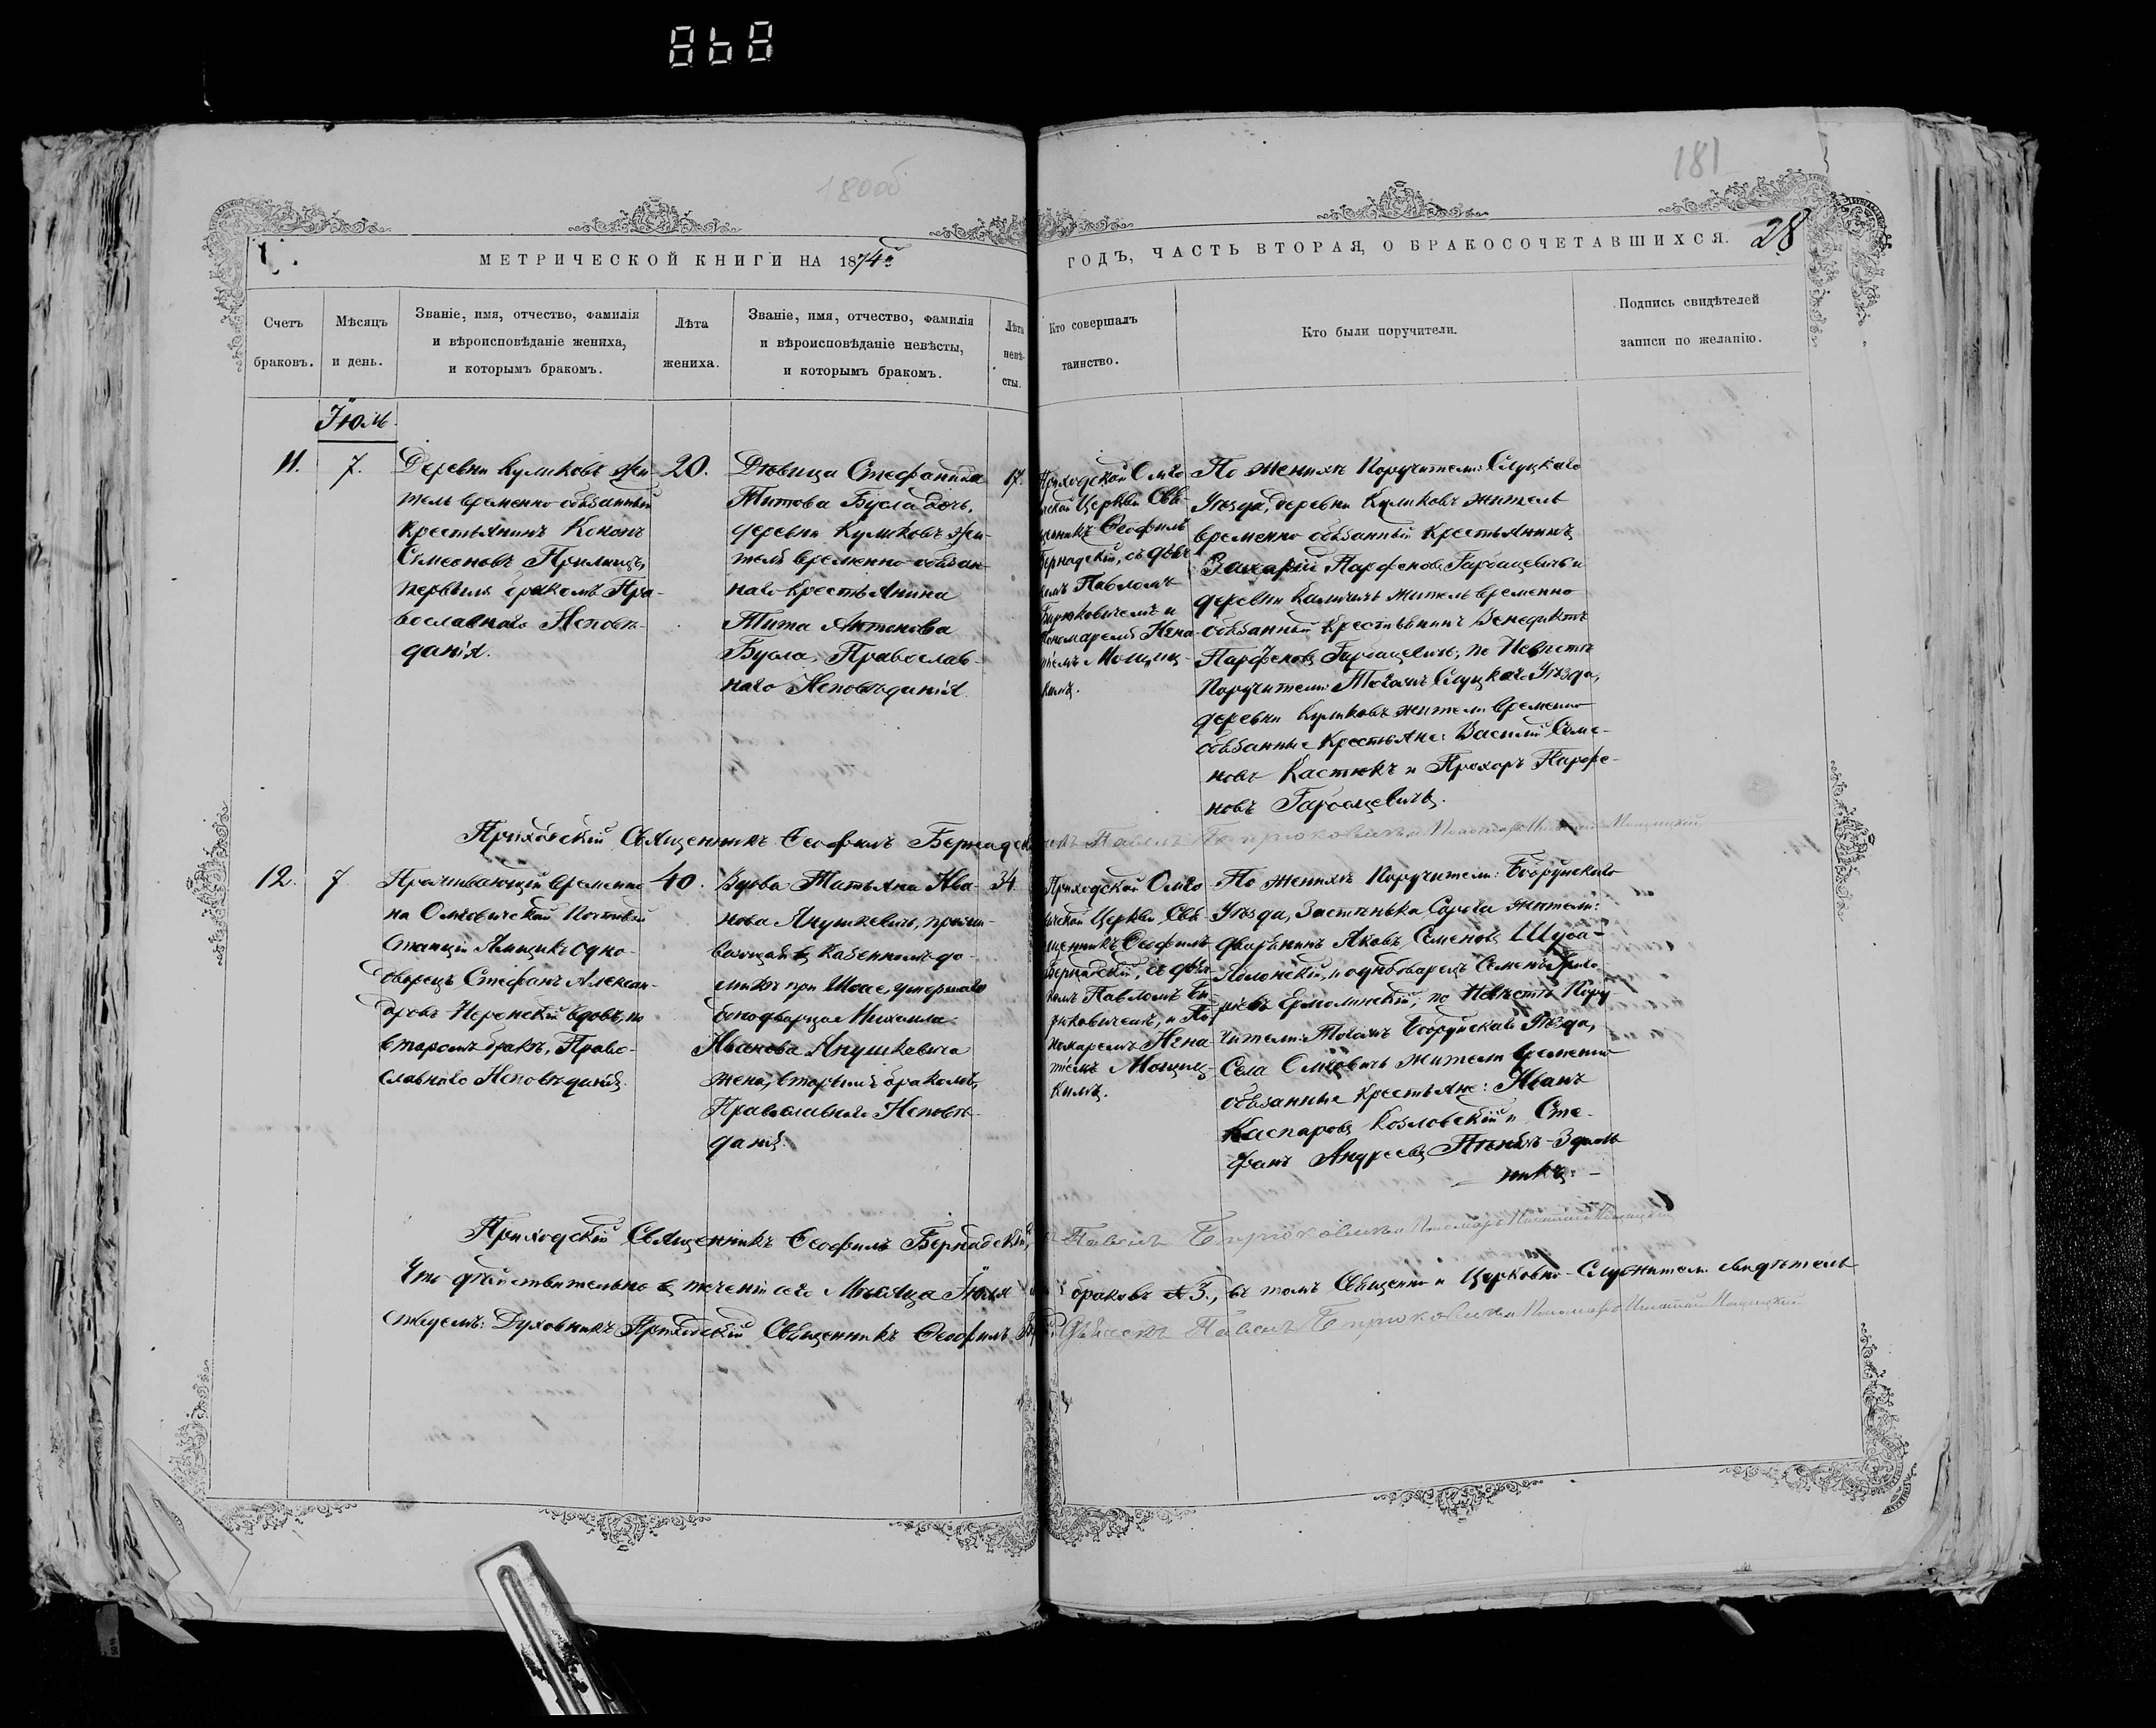 868
180об
181
28
МЕТРИЧЕСКОЙ КНИГИ НА 1874й
ГОДЪ, ЧАСТЬ ВТОРАЯ, О БРАКОСОЧЕТАВШИХСЯ.
Счетъ
браковъ.
Мѣсяцъ
и день.
Званіе, имя, отчество, фамилія
и вѣроисповѣданіе жениха,
и которымъ бракомъ.
Лѣта
жениха.
Званіе, имя, отчество, фамилія
и вѣроисповѣданіе невѣсты,
и которымъ бракомъ.
Лѣта
невѣ-
сты.
Кто совершалъ
таинство.
Кто были поручители.
Подпись свидѣтелей
записи по желанію.
Іюль.
11.
7.
Деревни Куликовъ жи-
тель временно обязанный
крестьянинъ Кононъ
Симеоновъ
первымъ бракомъ Пра-
вославнаго Исповѣ-
данія.
20.
Дѣвица Стефанида
Титова Бусла дочь,
деревни Куликовъ жи-
теля временно обязан-
наго крестьянина
Тита Антонова
Бусла, Православ-
наго Исповѣданія
17.
Приходской Омго
Церкви Свя-
щенникъ Ѳеофилъ
Бернадскій, съ дьяч-
комъ Павломъ
Бирюковичемъ и
Пономаремъ Игна-
тіемъ Мощиц-
кимъ.
По женихѣ Поручители: Слуцкаго
Уѣзда, деревни Куликовъ житель
временно обязанный крестьянинъ
Захарій Парфеновъ Гарбацевичъ и
деревни житель временно
обязанный крестьянинъ Венедиктъ
Парфеновъ Гарбацевичъ, по Невѣстѣ
Поручители: Тогожъ Слуцкаго Уѣзда,
деревни Куликовъ жители временно
обязанные крестьяне: Василій Симе-
новъ Костюкъ и Прохоръ Парфе-
новъ Гарбацевичъ.
Приходскій Священникъ Ѳеофилъ Бернадскій Павелъ Бирюковичъ и Пономарь Игнатій Мощицкій
12.
7.
Проживающій временно
на Омговичской Почтовой
Станціи Ямщикъ одно-
дворецъ Стефанъ Алексан-
дровъ Неронскій вдовъ, по
второмъ бракѣ, Право-
славнаго Исповѣданія.
40.
Вдова Татьяна Ива-
нова Янушкевичъ, прожи-
вающая въ казенномъ до-
микѣ при Шосе, умершаго
однодворца Михаила
Иванова Янушкевича
жена, вторымъ бракомъ,
Православнаго Исповѣ-
данія.
34
Приходской Омго
вичской Церкви Свя-
щенникъ Ѳеофилъ
Бернадскій, съ дьяч-
комъ Павломъ Би-
рюковичемъ, и По-
номаремъ Игна-
тіемъ Мощиц-
кимъ.
По женихѣ Поручители: Бобруйскаго
Уѣзда, Застѣнька Сорога жители:
дворянинъ Яковъ Семеновъ Шуба-
и однодворецъ Семенъ Григо-
рьевъ Ермолинскій, по Невѣстѣ Пору-
чители: Тогожъ Бобруйскаго Уѣзда,
Села Омговичъ жители временно
обязанные крестьяне: Иванъ
Каспаровъ Козловскій и Сте-
фанъ Андреевъ
Приходскій Священникъ Ѳеофилъ Бернадскій, Павелъ Бирюковичъ и Пономарь Игнатій Мощицкій
Что дѣйствительно въ теченіи сего Мѣсяца Іюля браковъ 3., въ томъ Священно и Церковно-Служители свидѣтель
ствуемъ: Духовникъ Приходскій Священникъ Ѳеофилъ Дьячекъ Павелъ Бирюковичъ и Пономарь Игнатій Мощицкій